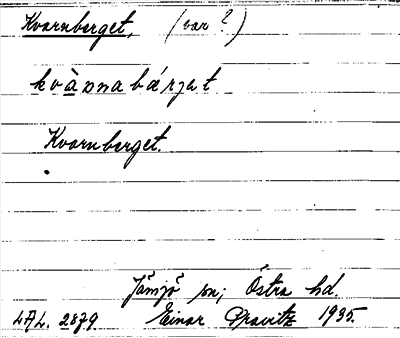 Kvarnberget, (var?)
kvànnabárjat
Kvarnberget.
Jämjö sn; Östra hd.
LAL. 2879. Einar 1935.